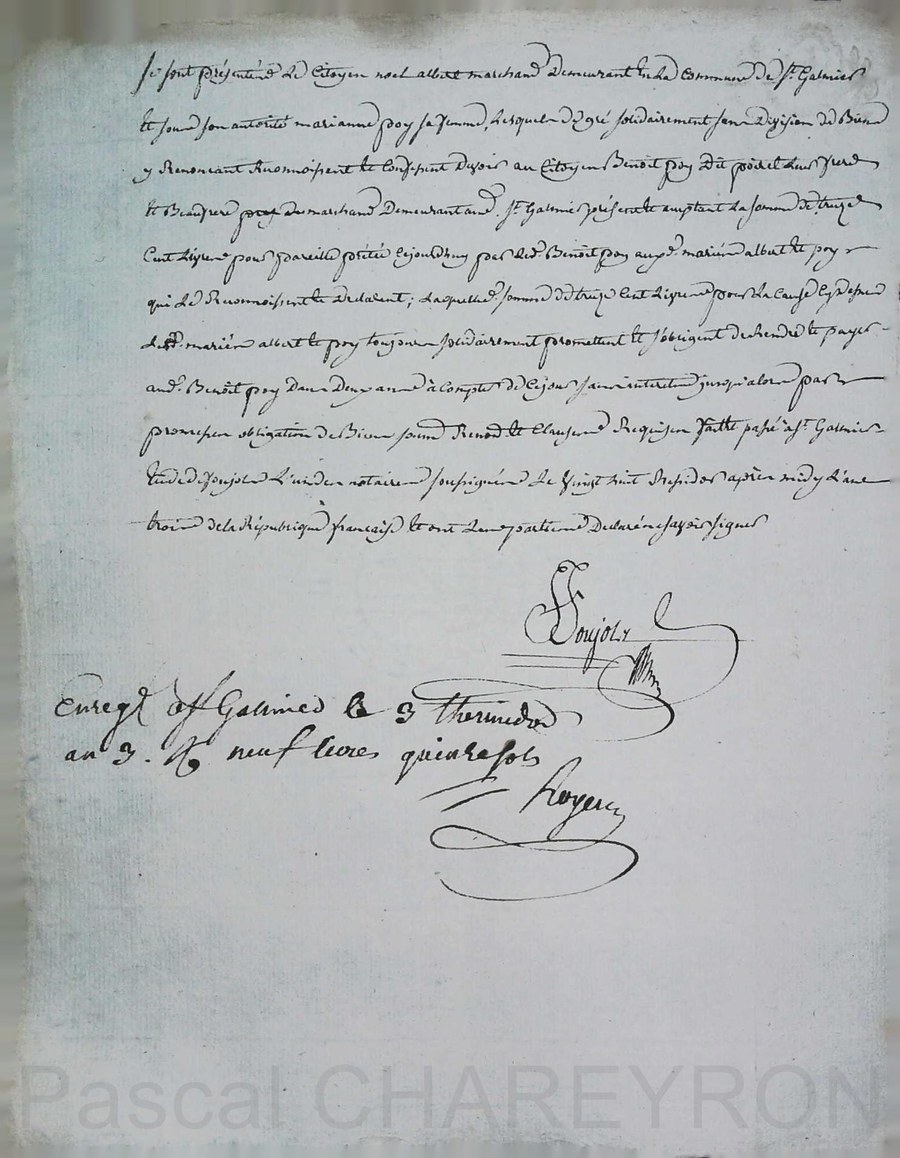 Se sont présentés Le Citoyen noel albert marchand Demeurant en La Commune de St. Galmier
Et sous son autorité marianne poy sa femme, Lesquels de gré solidairement sans Division de Biens
y Renoncant Reconnoissent Et Confessent Devoir au Citoyen Benoit poy Dit poirel Leur frere
Et Beaufrere marchand Demeurant aud. St. Galmier présent Et acceptant La somme De treize
Cent Livres pour pareille prétée Cejourd'huy par Led. Benoit poy auxd. mariés albert Et poy
qui Le Reconnoissent Et Declarent; Laquelle somme De treize Cent Livres pour La Cause Cy Dessus
Les mariés albert Et poy toujours solidairement promettent Et s'obligent De Rendre Et payer
aud. Benoit poy Dans Deux ans à Compter De Cejour sans interets jusqu'alors par
promesses obligation De Biens soum. Renon. Et Clauses Requises fait Et passé à St. Galmier
Etude De Soujols L'un des notaires soussignés Le Vingt huit Messidor après midy L'an
trois De la République française Et ont Les parties Declaré ne savoir signer
Soujols
Enregé. à St Galmier le 3 thermidor
an 3. R. neuf livres quinze sols
Royer
Pascal CHAREYRON